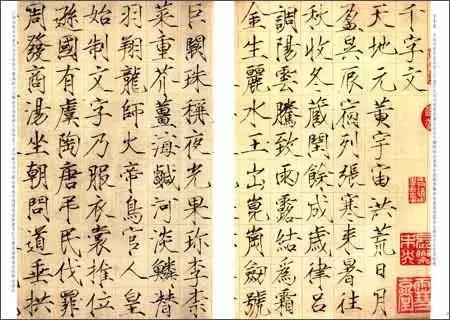 千字文
天地元黃宇宙洪荒日月
盈昃辰宿列張寒來暑往
秋收冬藏閏餘成歲律呂
調陽雲騰致雨露結爲霜
金生麗水玉出崑崗劍號
巨闕珠稱夜光果珍李柰
菜重芥薑海鹹河淡鱗潛
羽翔龍師火帝鳥官人皇
始制文字乃服衣裳推位
遜國有虞陶唐弔民伐罪
周發商湯坐朝問道垂拱